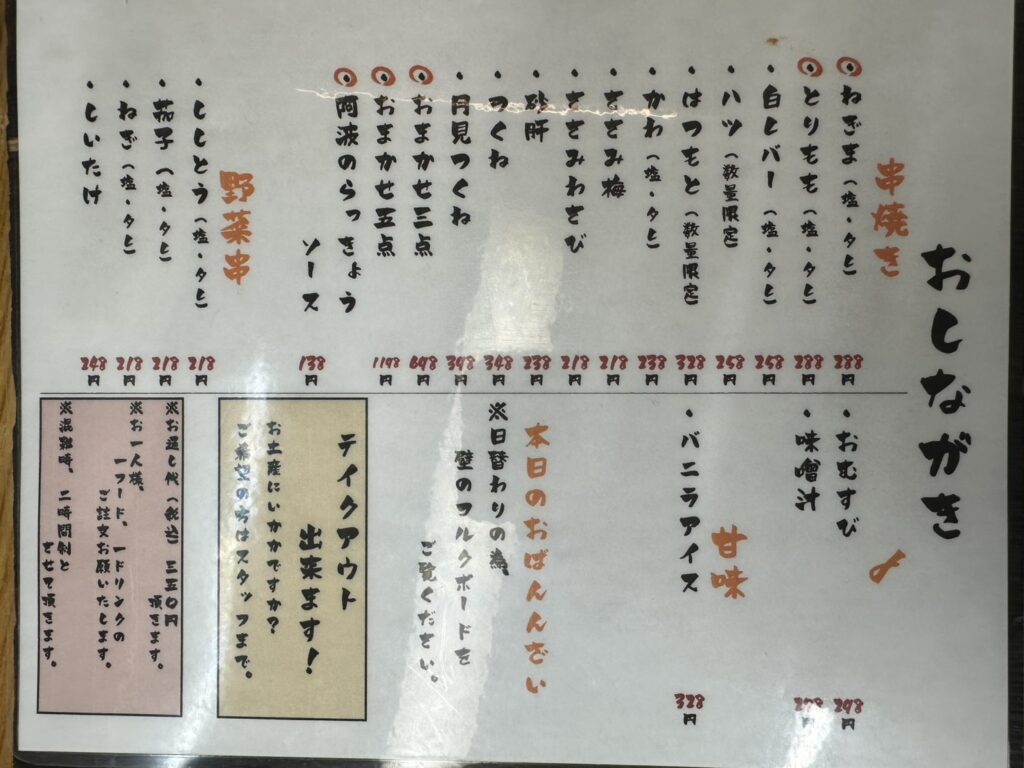 おしながき
串焼き
ねぎま（塩・タレ） 288円
とりもも（塩・タレ） 288円
・白レバー（塩・タレ） 258円
・ハツ（数量限定） 258円
・はつもと（数量限定） 328円
・かわ（塩・タレ） 238円
・ささみ梅 218円
・ささみわさび 218円
・砂肝 238円
・つくね 348円
・月見つくね 398円
おまかせ三点 698円
おまかせ五点 1198円
阿波のらっきょう
ソース 138円
野菜串
・ししとう（塩・タレ） 218円
・茄子（塩・タレ） 218円
・ねぎ（塩・タレ） 218円
・しいたけ 248円
〆
・おむすび 298円
・味噌汁 298円
甘味
・バニラアイス 328円
本日のおばんんざい
※日替わりの為、
壁のフルクボードを
ご覧ください。
テイクアウト
出来ます！
お土産にいかがですか？
ご希望の方はスタッフまで。
※お通し代（税込）三五〇円
頂きます。
※お一人様、
一フード、一ドリンクの
ご注文お願いたします。
※混雑時、二時間制と
させて頂きます。